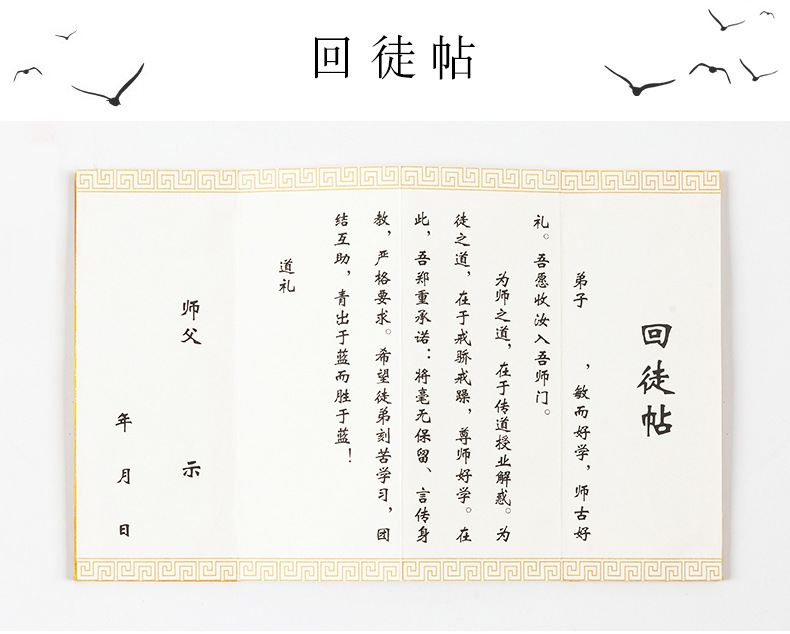 回徒帖
回徒帖
弟子　　，敏而好学，师古好
礼。吾愿收汝入吾师门。
为师之道，在于传道授业解惑。为
徒之道，在于戒骄戒躁，尊师好学。在
此，吾郑重承诺：将毫无保留、言传身
教，严格要求。希望徒弟刻苦学习，团
结互助，青出于蓝而胜于蓝！
道礼
师父　　　示
年　月　日